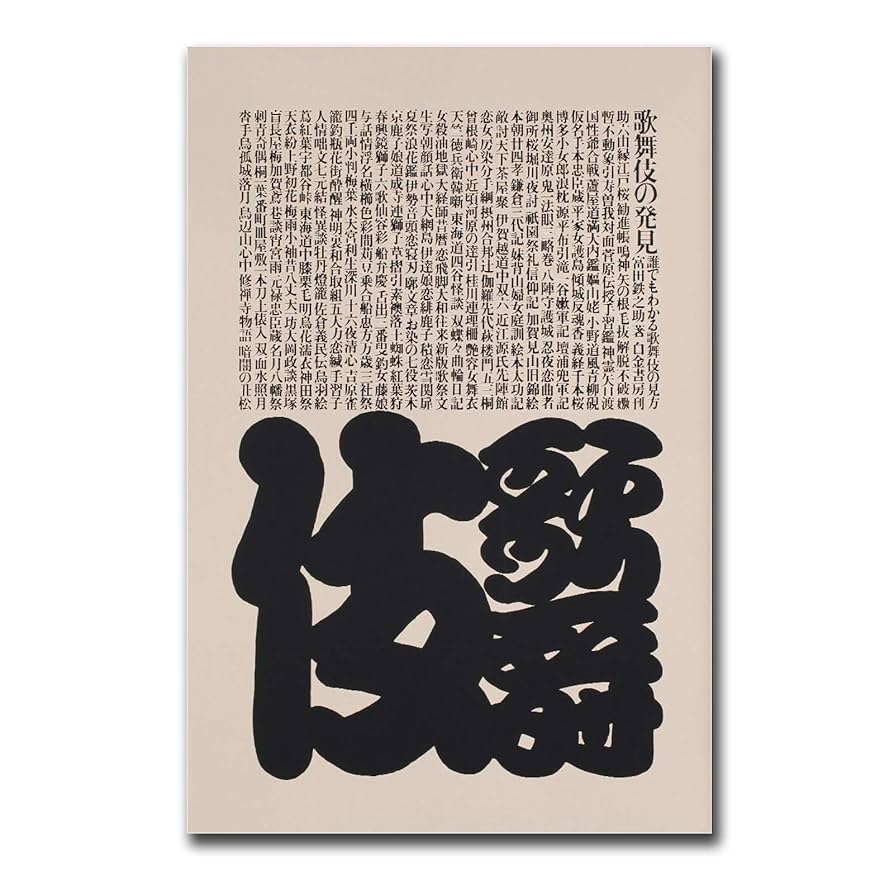 歌舞伎の発見
誰でもわかる歌舞伎の見方
富田鉄之助著 白金書房刊
助六由縁江戸桜 勧進帳 鳴神 矢の根 毛抜 解脱 不破 嫐
暫 不動 象引 寿曽我対面 菅原伝授手習鑑 神霊矢口渡
国性爺合戦 蘆屋道満大内鑑 嫗山姥 小野道風青柳硯
仮名手本忠臣蔵 平家女護島 傾城反魂香 義経千本桜
博多小女郎浪枕 源平布引滝 一谷嫩軍記 壇浦兜軍記
奥州安達原 鬼一法眼三略巻 八陣守護城 忍夜恋曲者
御所桜堀川夜討 祇園祭礼信仰記 加賀見山旧錦絵
本朝廿四孝 鎌倉三代記 妹背山婦女庭訓 絵本太功記
敵討天下茶屋聚 伊賀越道中双六 近江源氏先陣館
恋女房染分手綱 摂州合邦辻 伽羅先代萩 楼門五三桐
曽根崎心中 近頃河原の達引 桂川連理柵 艶容女舞衣
天竺徳兵衛韓噺 東海道四谷怪談 双蝶々曲輪日記
女殺油地獄 大経師昔暦 恋飛脚大和往来 新版歌祭文
生写朝顔話 心中天網島 伊達娘恋緋鹿子 積恋雪関扉
夏祭浪花鑑 伊勢音頭恋寝刃 廓文章 お染の七役 茨木
京鹿子娘道成寺 連獅子 草摺引 素襖落 土蜘 紅葉狩
春興鏡獅子 六歌仙容彩 船弁慶 舌出三番叟 釣女 藤娘
与話情浮名横櫛 色彩間苅豆 乗合船恵方万歳 三社祭
四千両小判梅葉 水天宮利生深川 十六夜清心 吉原雀
籠釣瓶花街酔醒 神明恵和合取組 五大力恋緘 手習子
人情噺文七元結 怪異談牡丹燈籠 佐倉義民伝 鳥羽絵
蔦紅葉宇都谷峠 東海道中膝栗毛 明烏花濡衣 神田祭
天衣紛上野初花 梅雨小袖昔八丈 天一坊大岡政談 黒塚
盲長屋梅加賀鳶 巷談宵宮雨 元禄忠臣蔵 名月八幡祭
刺青奇偶 桐一葉 番町皿屋敷 一本刀土俵入 双面水照月
沓手鳥孤城落月 鳥辺山心中 修禅寺物語 暗闇の丑松
歌舞
伎